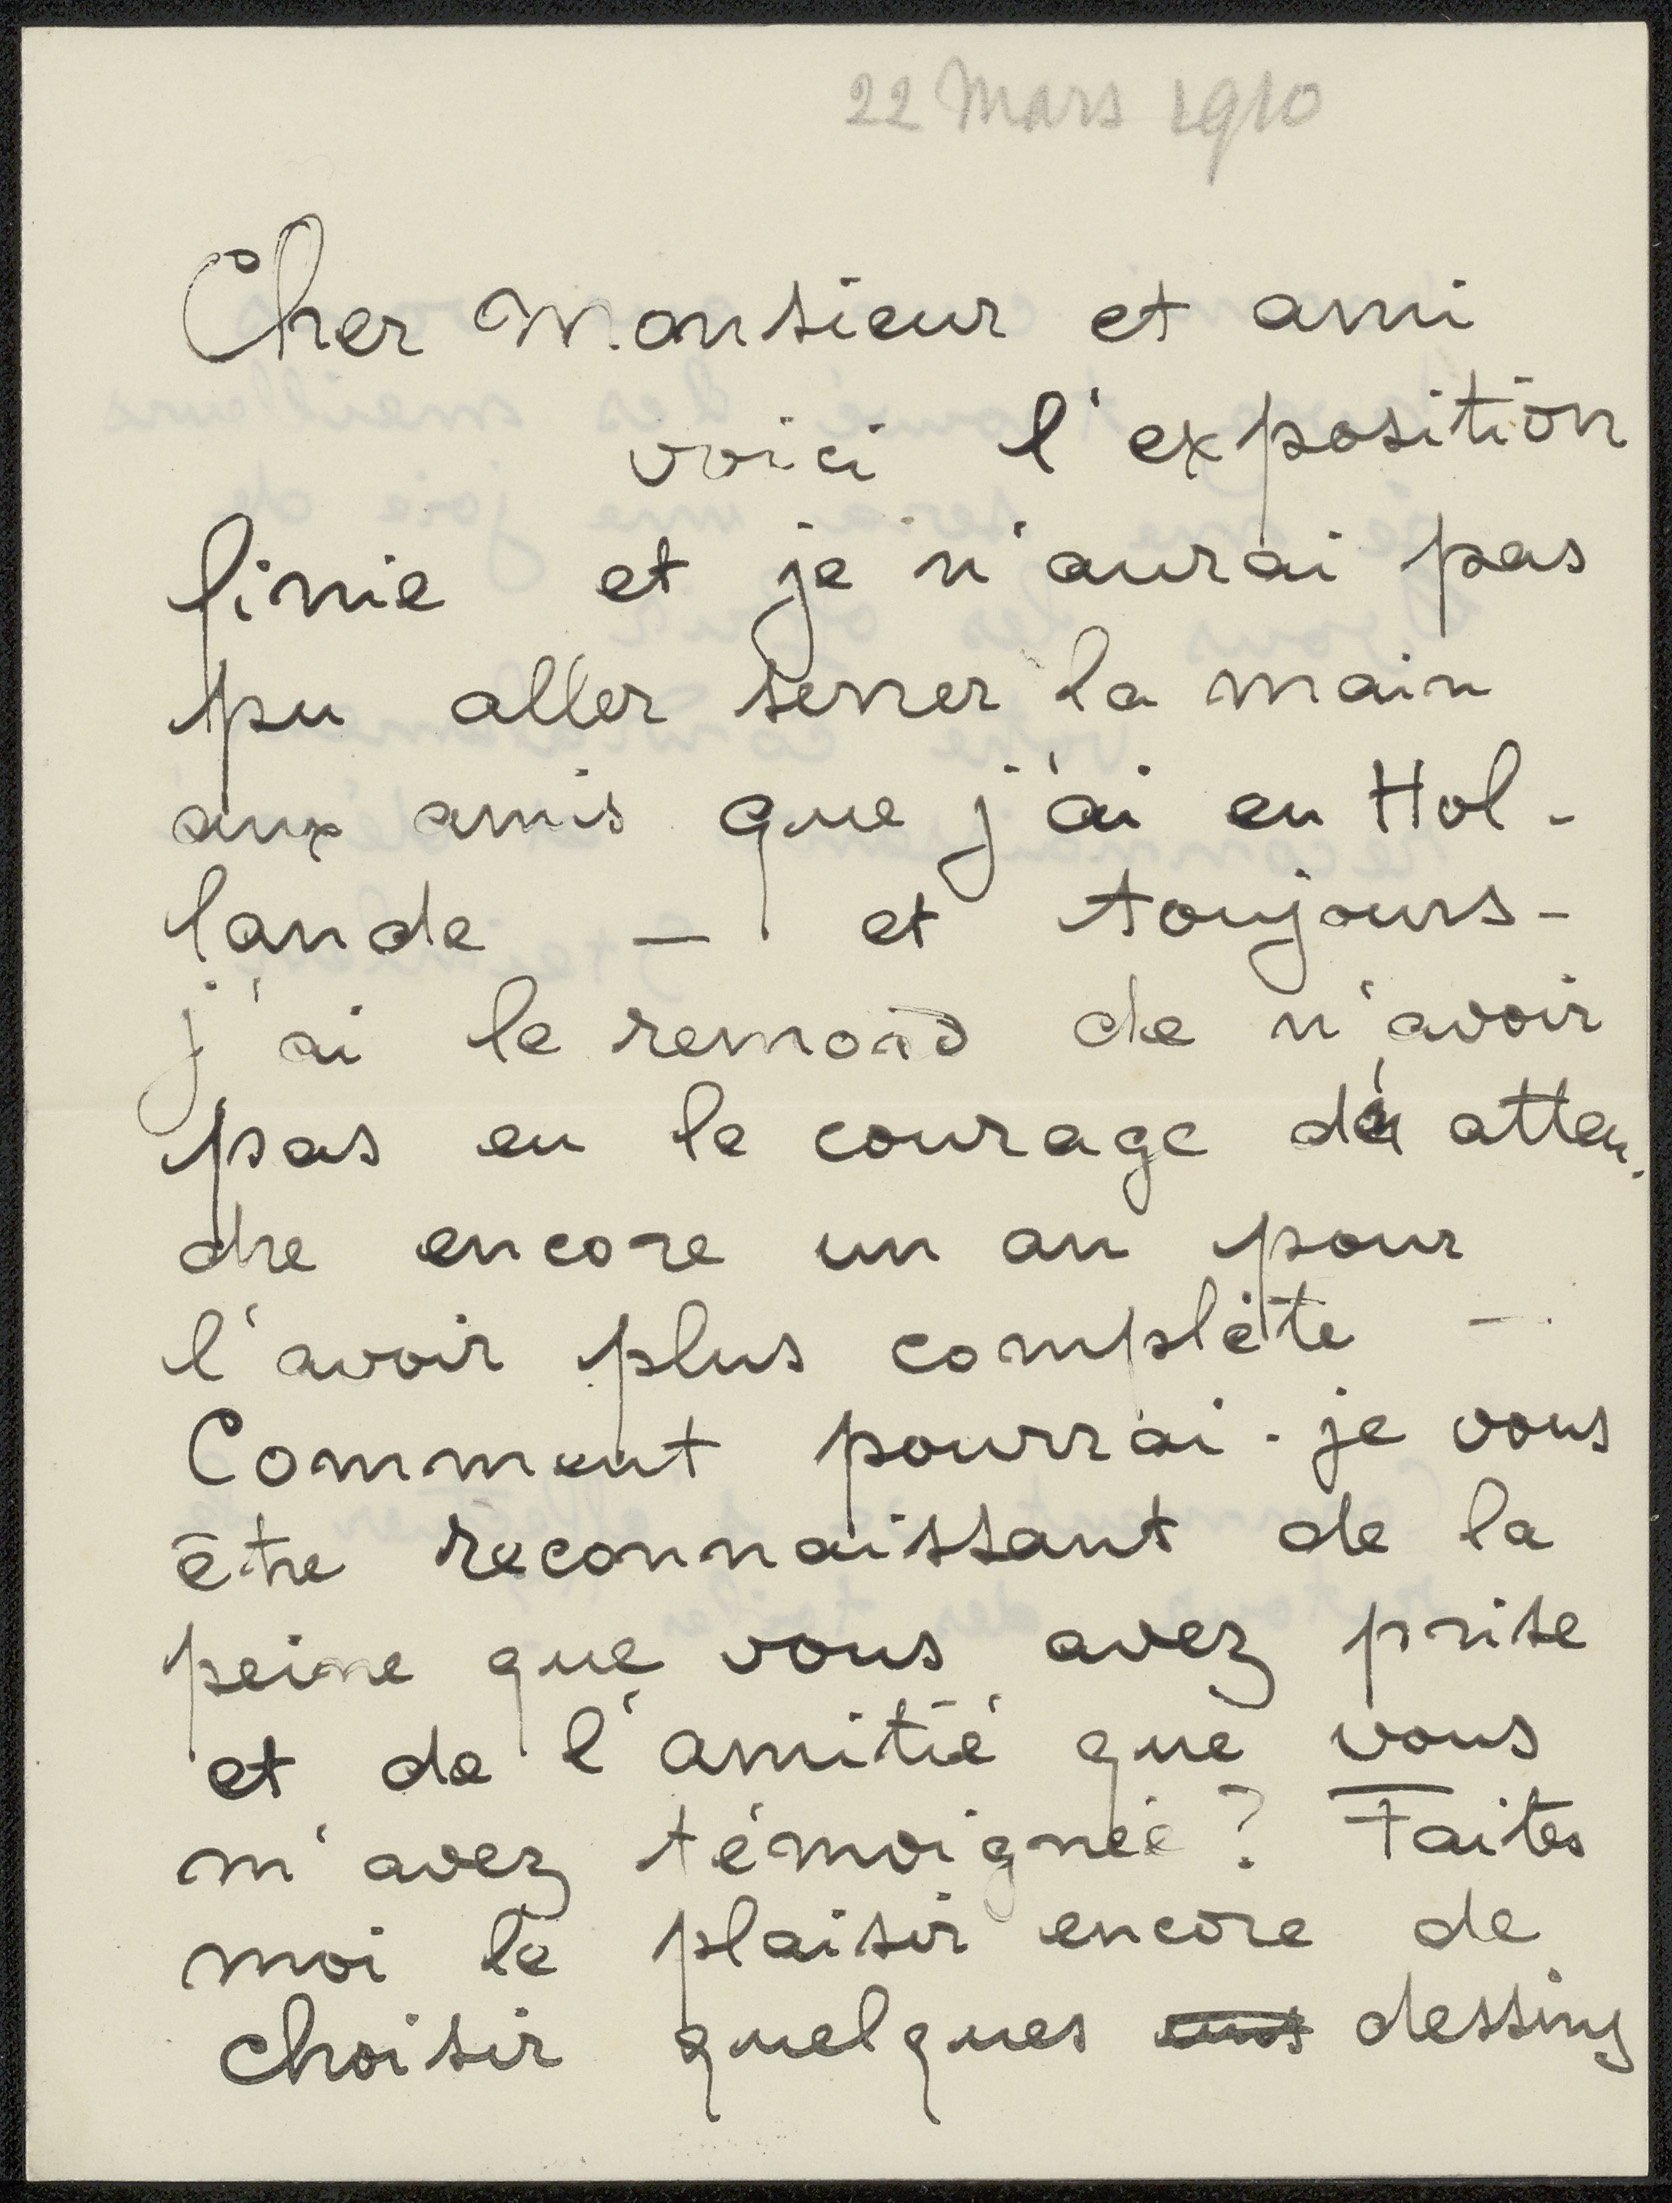 22 Mars 1910
Cher Monsieur et ami
voici l'exposition
finie et je n'aurai pas
pu aller serrer la main
aux amis que j'ai en Hol-
lande — et toujours -
j'ai le remord de n'avoir
pas eu le courage d'atten-
dre encore un an pour
l'avoir plus complète -.
Comment pourrai-je vous
être reconnaissant de la
peine que vous avez prise
et de l'amitié que vous
m'avez témoignée ? Faites
moi le plaisir encore de
choisir quelques dessins